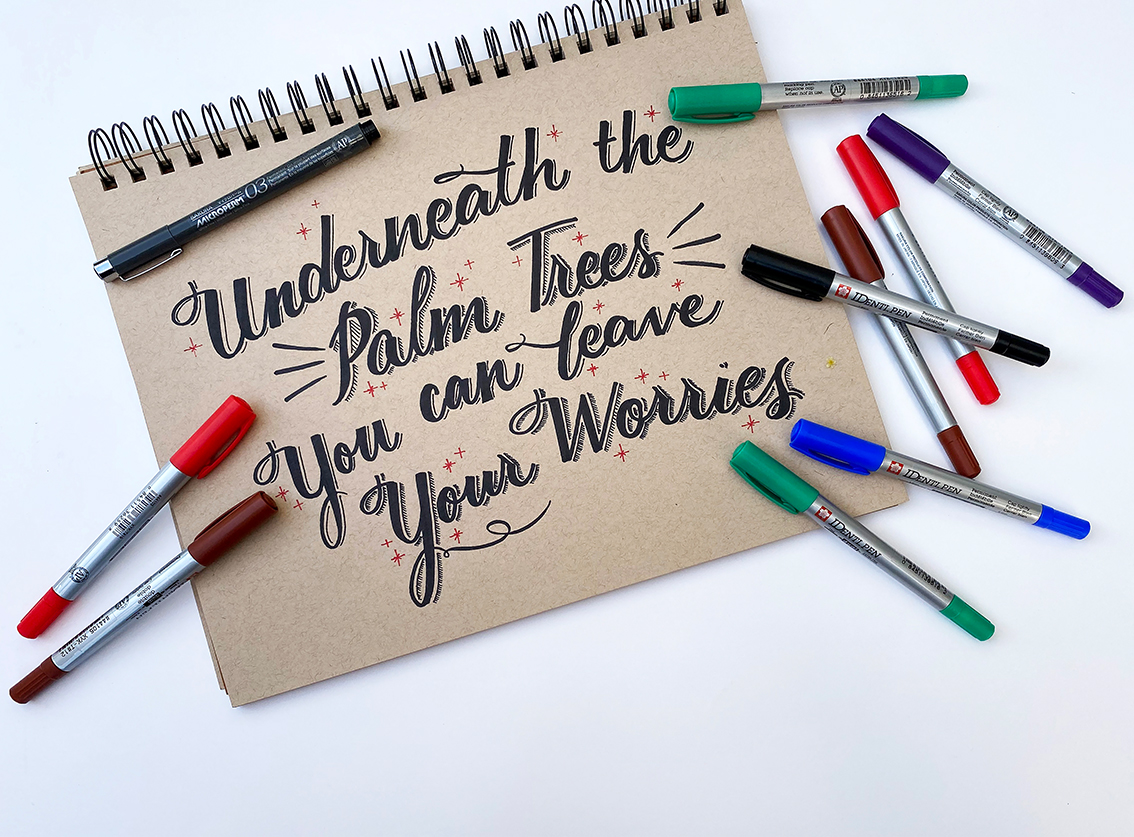 Underneath the
Palm Trees
You can leave
Your Worries
SAKURA
MICROPERM 03
AP
IDENTI.PEN
IDENTI.PEN
IDENTI.PEN